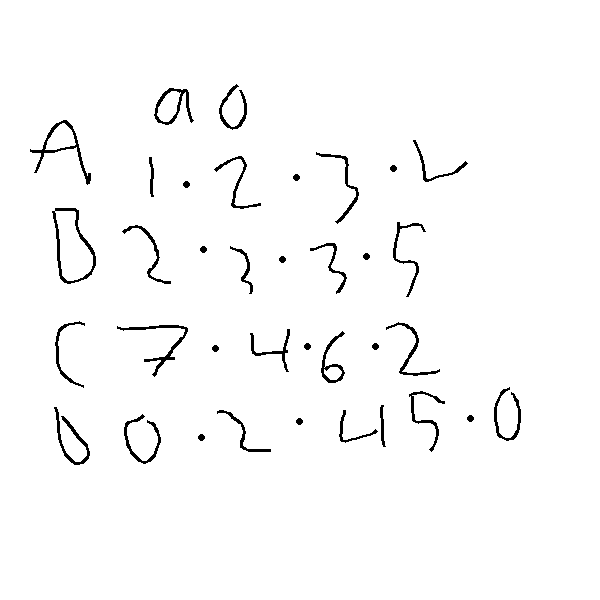 a 0
A 1 · 2 · 3 ·
B 2 · 3 · 3 · 5
C 7 · 4 · 6 · 2
D 0 · 2 · 45 · 0